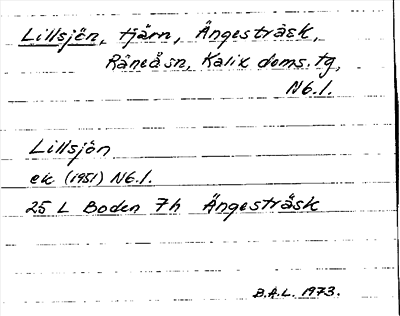 Lillsjön, tjärn, Ängesträsk,
Råneå sn, Kalix doms. tg,
Nb.l.
Lillsjön
ek (1951) Nb.l.
25 L Boden 7h Ängesträsk
B.A.L. 1973.